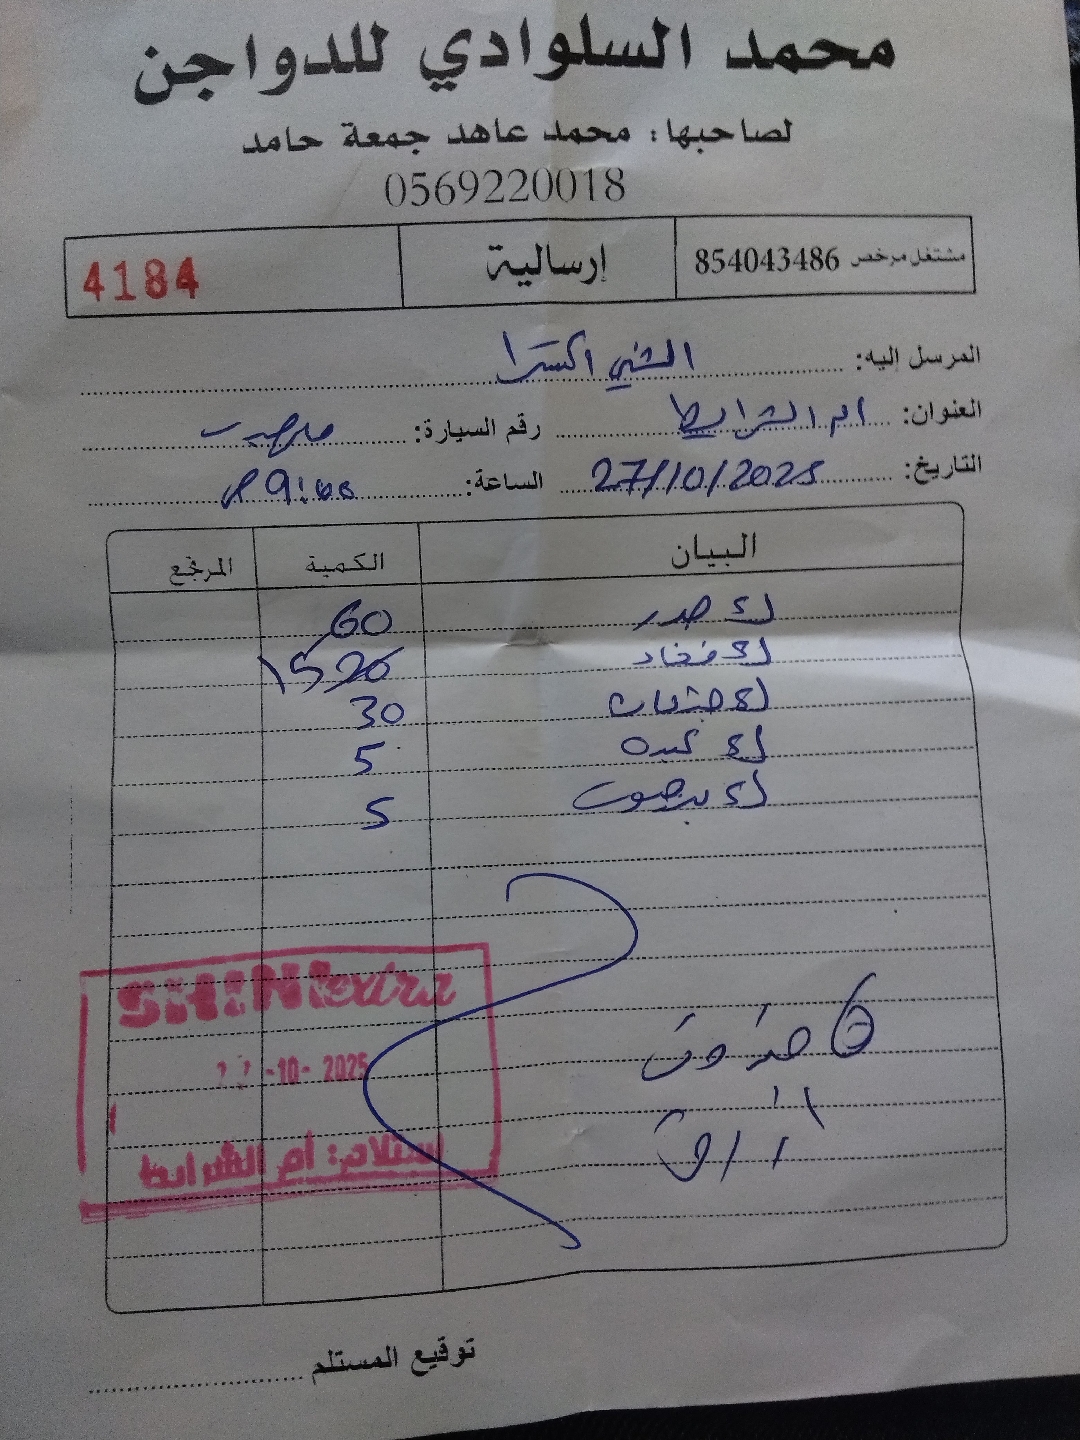 محمد السلوادي للدواجن
لصاحبها: محمد عاهد جمعة حامد
0569220018
مشتغل مرخص 854043486 إرسالية 4184
المرسل إليه: الشني اكسترا
العنوان: ام الشرايط رقم السيارة:
التاريخ: 27/10/2025 الساعة: 9:00
البيان الكمية المرتجع
ك صدر 60
ك فخاد 15
ك جنحات 30
ك كبده 5
ك 5
SHINIextra
-10- 2025
استلام: أم الشرايط
توقيع المستلم